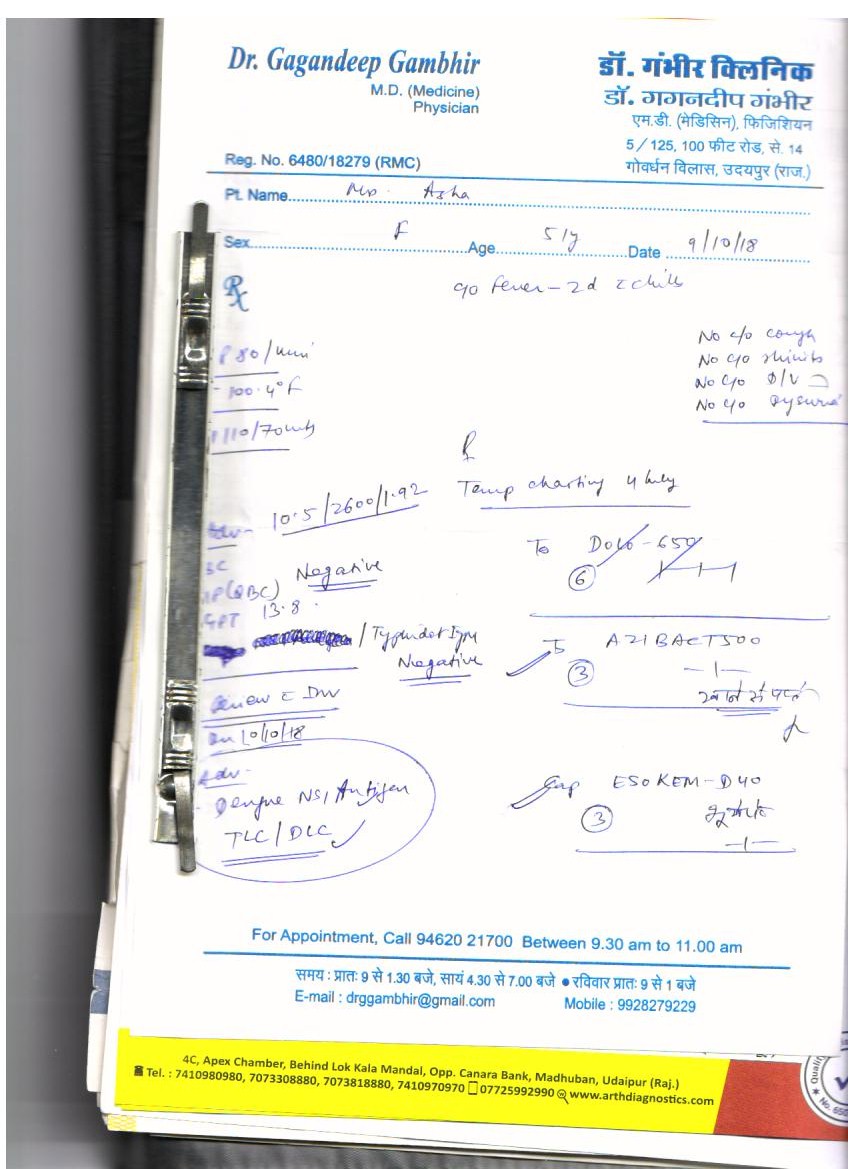 Dr. Gagandeep Gambhir
M.D. (Medicine)
Physician
Reg. No. 6480/18279 (RMC)
डॉ. गंभीर क्लिनिक
डॉ. गगनदीप गंभीर
एम.डी. (मेडिसिन), फिजिशियन
5/125, 100 फीट रोड, से. 14
गोवर्धन विलास, उदयपुर (राज.)
Pt. Name Asha
Sex F Age 51y Date 9/10/18
Rx
c/o Fever - 2d c chills
No c/o cough
No c/o rhinitis
No c/o D/V
No c/o Dysuria
P 80/min
100.4°F
110/70
Temp charting 4 hrly
Adv- 10.5/2600/1.92
(QBC) Negative
GPT 13.8
/ Typhidot IgM
Negative
Review c
On 10/10/18
Adv-
Dengue NS1 Antigen
TLC/DLC
Dolo-650
6
AZIBACT 500
3
-1-
Cap ESOKEM-D 40
3
-1-
For Appointment, Call 94620 21700 Between 9.30 am to 11.00 am
समय : प्रातः 9 से 1.30 बजे, सायं 4.30 से 7.00 बजे ● रविवार प्रातः 9 से 1 बजे
E-mail : drggambhir@gmail.com Mobile : 9928279229
4C, Apex Chamber, Behind Lok Kala Mandal, Opp. Canara Bank, Madhuban, Udaipur (Raj.)
Tel. : 7410980980, 7073308880, 7073818880, 7410970970 07725992990 www.arthdiagnostics.com